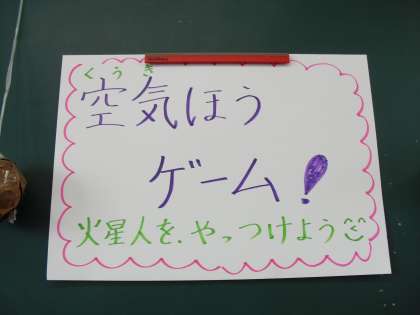 くうき
空気ほう
ゲーム!
火星人を、やっつけよう